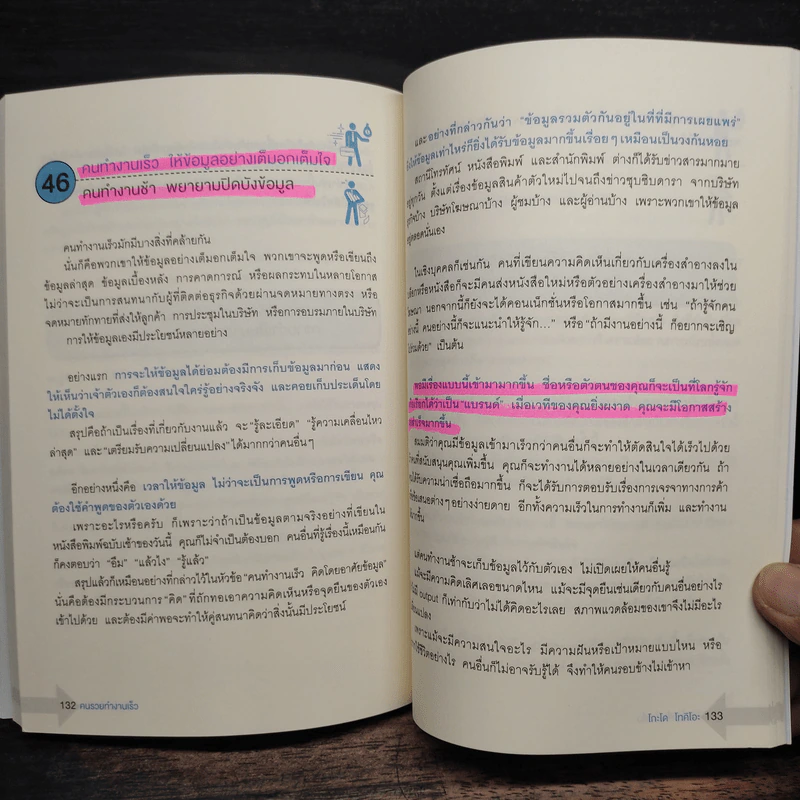 46
คนทำงานเร็ว ให้ข้อมูลอย่างเต็มอกเต็มใจ
คนทำงานช้า พยายามปิดบังข้อมูล
คนทำงานเร็วมักมีบางสิ่งที่คล้ายกัน
นั่นก็คือพวกเขาให้ข้อมูลอย่างเต็มอกเต็มใจ พวกเขาจะพูดหรือเขียนถึง
ข้อมูลล่าสุด ข้อมูลเบื้องหลัง การคาดการณ์ หรือผลกระทบในหลายโอกาส
ไม่ว่าจะเป็นการสนทนากับผู้ที่ติดต่อธุรกิจด้วยผ่านจดหมายทางตรง หรือ
จดหมายทักทายที่ส่งให้ลูกค้า การประชุมในบริษัท หรือการอบรมภายในบริษัท
การให้ข้อมูลเองมีประโยชน์หลายอย่าง
อย่างแรก การจะให้ข้อมูลได้ย่อมต้องมีการเก็บข้อมูลมาก่อน แสดง
ให้เห็นว่าเจ้าตัวเองก็ต้องสนใจใคร่รู้อย่างจริงจัง และคอยเก็บประเด็นโดย
ไม่ได้ตั้งใจ
สรุปคือถ้าเป็นเรื่องที่เกี่ยวกับงานแล้ว จะ "รู้ละเอียด" "รู้ความเคลื่อนไหว
ล่าสุด" และ "เตรียมรับความเปลี่ยนแปลง" ได้มากกว่าคนอื่นๆ
อีกอย่างหนึ่งคือ เวลาให้ข้อมูล ไม่ว่าจะเป็นการพูดหรือการเขียน คุณ
ต้องใช้คำพูดของตัวเองด้วย
เพราะอะไรหรือครับ ก็เพราะว่าถ้าเป็นข้อมูลตามจริงอย่างที่เขียนใน
หนังสือพิมพ์ฉบับเช้าของวันนี้ คุณก็ไม่จำเป็นต้องบอก คนอื่นที่รู้เรื่องนี้เหมือนกัน
ก็คงตอบว่า "อืม" "แล้วไง" "รู้แล้ว"
สรุปแล้วก็เหมือนอย่างที่กล่าวไว้ในหัวข้อ "คนทำงานเร็ว คิดโดยอาศัยข้อมูล"
นั่นคือต้องมีกระบวนการ "คิด" ที่ถักทอเอาความคิดเห็นหรือจุดยืนของตัวเอง
เข้าไปด้วย และต้องมีค่าพอจะทำให้คู่สนทนาคิดว่าสิ่งนั้นมีประโยชน์
132 คนรวยทำงานเร็ว
และอย่างที่กล่าวกันว่า "ข้อมูลรวมตัวกันอยู่ในที่ที่มีการเผยแพร่"
ให้ข้อมูลเท่าไหร่ก็ยิ่งได้รับข้อมูลมากขึ้นเรื่อยๆ เหมือนเป็นวงก้นหอย
สถานีโทรทัศน์ หนังสือพิมพ์ และสำนักพิมพ์ ต่างก็ได้รับข่าวสารมากมาย
ทุกวัน ตั้งแต่เรื่องข้อมูลสินค้าตัวใหม่ไปจนถึงข่าวซุบซิบดารา จากบริษัท
บ้าง บริษัทโฆษณาบ้าง ผู้ชมบ้าง และผู้อ่านบ้าง เพราะพวกเขาให้ข้อมูล
อยู่ตลอดนั่นเอง
ในเชิงบุคคลก็เช่นกัน คนที่เขียนความคิดเห็นเกี่ยวกับเครื่องสำอางลงใน
หรือหนังสือก็จะมีคนส่งหนังสือใหม่หรือตัวอย่างเครื่องสำอางมาให้ช่วย
โฆษณา นอกจากนี้ก็ยังจะได้คอนเน็กชั่นหรือโอกาสมากขึ้น เช่น "ถ้ารู้จักคน
อย่างนี้ คนอย่างนี้ก็จะแนะนำให้รู้จัก..." หรือ "ถ้ามีงานอย่างนี้ ก็อยากจะเชิญ
ด้วย" เป็นต้น
พอมีเรื่องแบบนี้เข้ามามากขึ้น ชื่อหรือตัวตนของคุณก็จะเป็นที่โลกรู้จัก
เรียกได้ว่าเป็น "แบรนด์" เมื่อเวทีของคุณยิ่งผงาด คุณจะมีโอกาสสร้าง
สำเร็จมากขึ้น
สมมติว่าคุณมีข้อมูลเข้ามาเร็วกว่าคนอื่นก็จะทำให้ตัดสินใจได้เร็วไปด้วย
คนที่สนับสนุนคุณเพิ่มขึ้น คุณก็จะทำงานได้หลายอย่างในเวลาเดียวกัน ถ้า
ได้รับความน่าเชื่อถือมากขึ้น ก็จะได้รับการตอบรับเรื่องการเจรจาทางการค้า
ข้อเสนอต่างๆ อย่างง่ายดาย อีกทั้งความเร็วในการทำงานก็เพิ่ม และทำงาน
มากขึ้น
แต่คนทำงานช้าจะเก็บข้อมูลไว้กับตัวเอง ไม่เปิดเผยให้คนอื่นรู้
แม้จะมีความคิดเลิศเลอขนาดไหน แม้จะมีจุดยืนเช่นเดียวกับคนอื่นอย่างไร
ไม่มี output ก็เท่ากับว่าไม่ได้คิดอะไรเลย สภาพแวดล้อมของเขาจึงไม่มีอะไร
เปลี่ยนแปลง
เพราะแม้จะมีความสนใจอะไร มีความฝันหรือเป้าหมายแบบไหน หรือ
ใช้ชีวิตอย่างไร คนอื่นก็ไม่อาจรับรู้ได้ จึงทำให้คนรอบข้างไม่เข้าหา
โกะโด โทคิโอะ 133